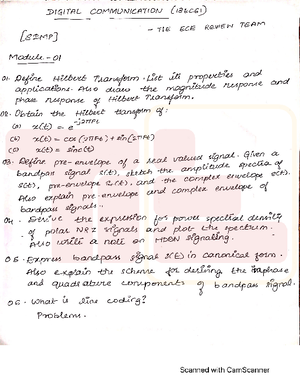 DIGITAL COMMUNICATION (18EC61)
- THE ECE REVEN TEAM
[SIMP]
Module-01
01. Define Hilbert Transform. List its properties and
applications. Also draw the magnitude response and
phase response of Hilbert Transform.
02. Obtain the Hilbert transform of:
(a) x(t) = e^-j2πft
(b) x(t) = cos(2πft) + sin(2πft)
(c) x(t) = sinc(t)
03. Define pre-envelope of a real valued signal. Given a
bandpass signal s(t), sketch the amplitude spectra of
s(t), pre-envelope and the complex envelope
Also explain pre-envelope and complex envelope of
bandpass signals.
04. Derive the expression for power spectral density
of polar NRZ signals and plot the spectrum.
Also write a note on HDBN signaling.
05. Express bandpass signal s(t) in canonical form.
Also explain the scheme for deriving the inphase
and quadrature components of bandpass signal.
06. What is line coding?
Problems.
Scanned with CamScanner